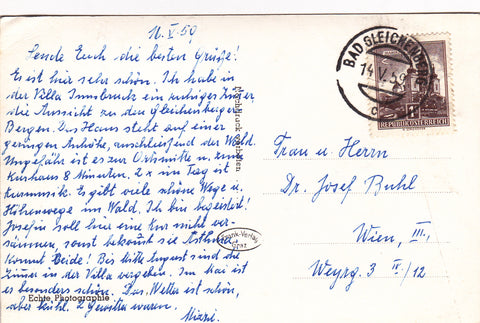 10.V.59
Sende Euch die besten Grüße!
Es ist hier sehr schön. Ich habe in
der Villa Innsbruck ein ruhiges Zimmer,
die Aussicht zu den Gleichenberger
Bergen. Das Haus steht auf einer
geringen Anhöhe, anschließend der Wald.
Ungefähr ist es zur Ortsmitte u. zum
Kurhaus 8 Minuten. 2 x im Tag ist
Kurmusik. Es gibt viele schöne Wege u.
Höhenwege im Wald. Ich bin begeistert!
Josefin soll hier eine Kur nicht ver-
säumen, sonst bekommt sie Asthma.
Kommt Beide! Bis Mitte August sind die
Zimmer in der Villa vergeben. Im Mai ist
es besonders schön. Das Wetter ist schön,
aber kühl. 2 Gewitter waren.
Mizzi.
Echte Photographie
Nachdruck verboten
Frank-Verlag
Graz
BAD GLEICHENBERG
14.V.59
REPUBLIK ÖSTERREICH
Frau u. Herrn
Dr. Josef Buhl
Wien, III,
Weyrg. 3 II/12